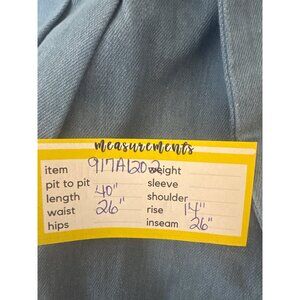 measurements
item 917A1202 weight
pit to pit sleeve
length 40" shoulder
waist 26" rise 14"
hips inseam 26"